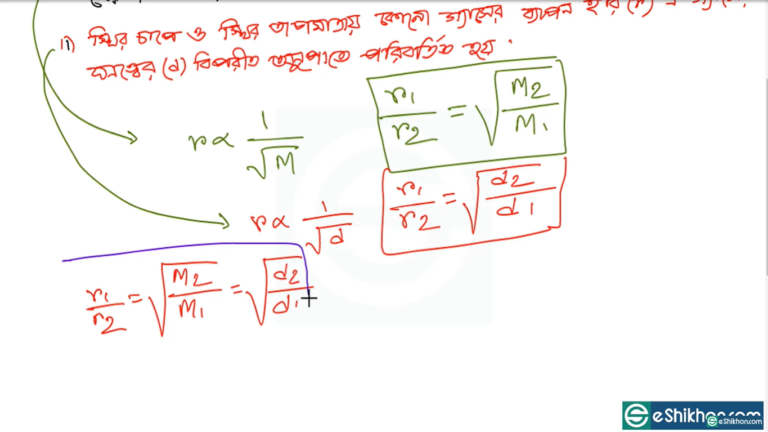 ii) স্থির চাপে ও স্থির তাপমাত্রায় কোনো গ্যাসের ব্যাপন হার (r)
ঘনত্বের (d) বিপরীত অনুপাতে পরিবর্তিত হয়।
r ∝ 1/√M
r₁/r₂ = √(M₂/M₁)
r ∝ 1/√d
r₁/r₂ = √(d₂/d₁)
r₁/r₂ = √(M₂/M₁) = √(d₂/d₁)
eShikhon.com
eShikhon.com